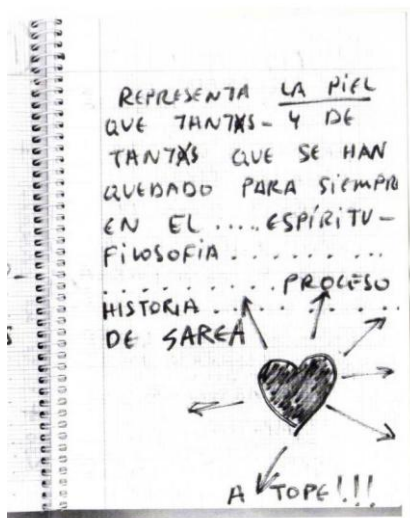 REPRESENTA LA PIEL
QUE TANTXS - Y DE
TANTXS QUE SE HAN
QUEDADO PARA SIEMPR
EN EL ..... ESPÍRITU -
FILOSOFIA . . . . . . . . .
. . . . . . . . . . PROCESO
HISTORIA . . . . . . . . .
DE SAREA
A TOPE!!!